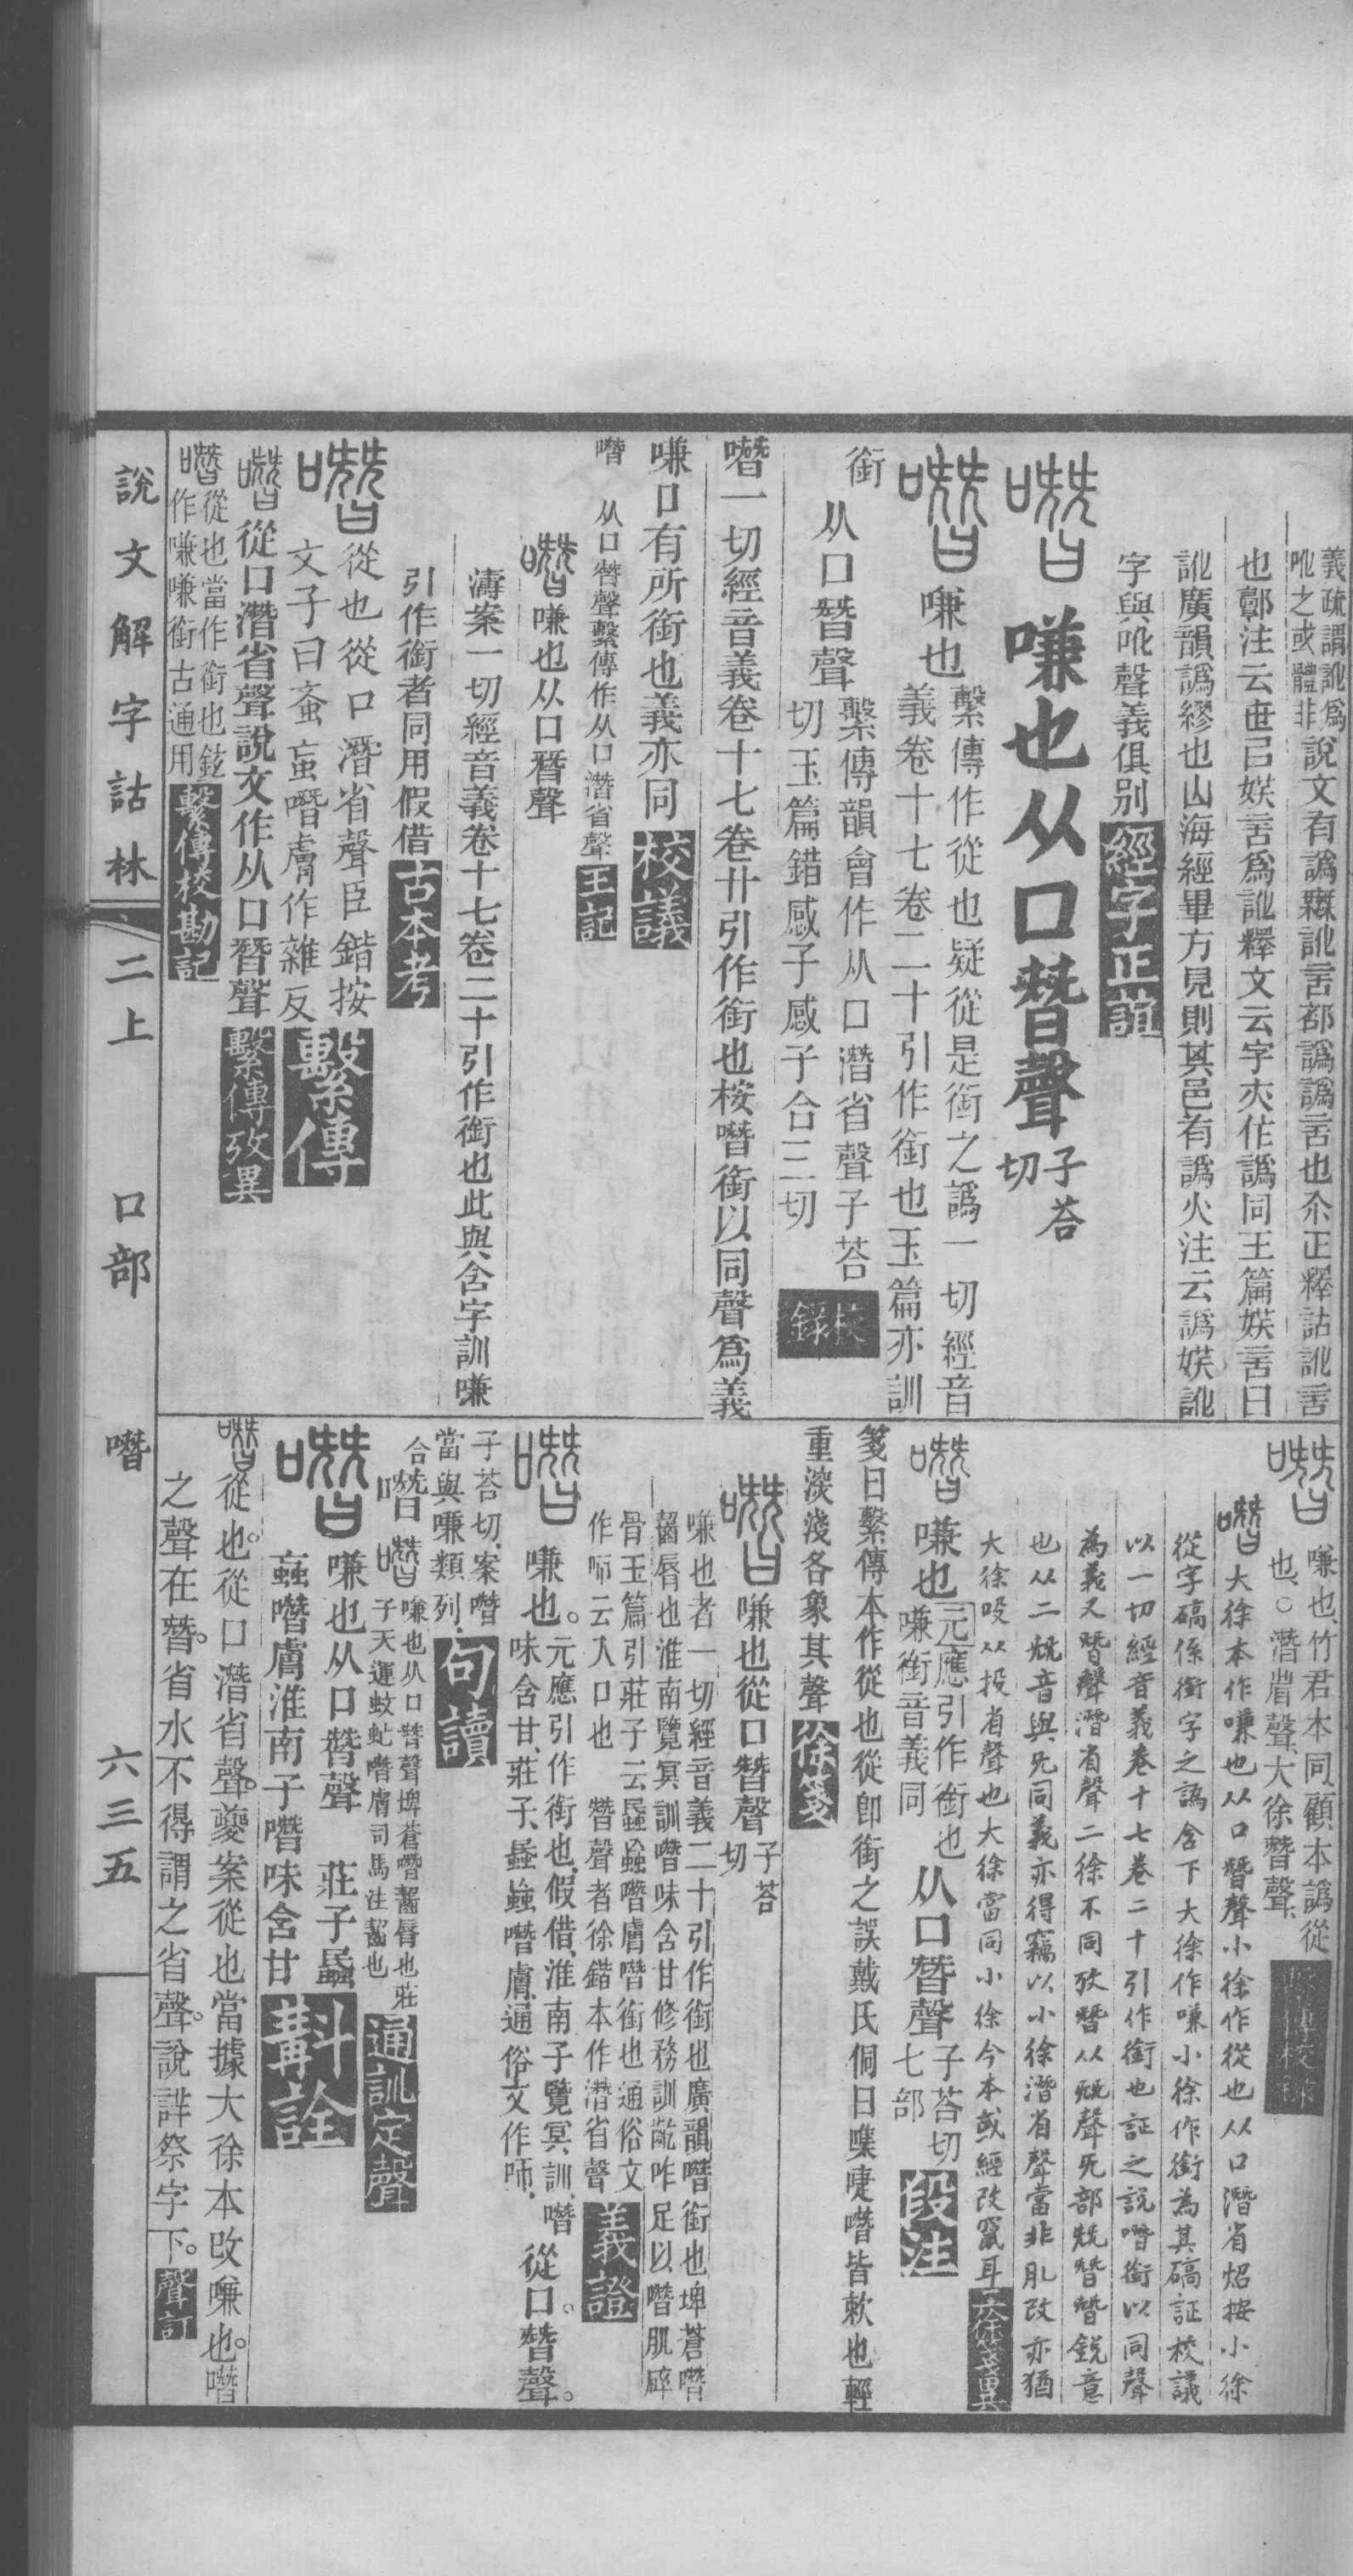 義疏謂訛爲
吪之或體非
說文有譌無訛言部譌譌言也尒正釋詁訛言
也鄣注云世㠯娱言爲訛釋文云字夾作譌同玉篇娱言曰
訛廣韻譌繆也山海經畢方見則其邑有譌火注云譌娱訛
字與吪聲義俱別 經字正誼
嗛也从口朁聲 子荅切
嗛也 繫傳作從也疑從是銜之譌一切經音
義卷十七卷二十引作銜也玉篇亦訓
銜
从口朁聲 繫傳韻會作从口潛省聲子荅
切玉篇錯感子感子合三切 校錄
噆一切經音義卷十七卷廿引作銜也桉噆銜以同聲爲義
嗛口有所銜也義亦同 校議
噆 从口朁聲繫傳作从口潛省聲 王記
嗛也从口朁聲
濤案一切經音義卷十七卷二十引作銜也此與含字訓嗛
引作銜者同用假借 古本考
從也從口潛省聲臣鍇按
文子曰蚉䖟噆膚作雜反 繫傳
從口潛省聲說文作从口朁聲 繫傳攷異
從也當作銜也鉉
作嗛嗛銜古通用 繫傳校勘記
說文解字詁林 二上 口部 噆 六三五
嗛也、竹君本同、顧本譌從
也、○潛省聲、大徐朁聲、 繫傳校錄
大徐本作嗛也从口朁聲小徐作從也从口潛省炤按小徐
從字碻係銜字之譌含下大徐作嗛小徐作銜為其碻証校議
以一切經音義卷十七卷二十引作銜也証之說噆銜以同聲
為義又朁聲潛省聲二徐不同攷朁从兓聲旡部兓朁朁銳意
也从二兓音與旡同義亦得竊以小徐潛省聲當非肊改亦猶
大徐吺从投省聲也大徐當同小徐今本或經改竄耳 二徐箋異
嗛也 元應引作銜也
嗛銜音義同
从口朁聲 子荅切
七部 段注
箋曰繫傳本作從也從卽銜之誤戴氏侗曰嗛唼噆皆欶也輕
重淡淺各象其聲 徐箋
嗛也從口朁聲 子荅
切
嗛也者一切經音義二十引作銜也廣韻噆銜也埤蒼噆
齧脣也淮南覽冥訓噆味含甘修務訓齕咋足以噆肌碎
骨玉篇引莊子云蟁䖟噆膚噆銜也通俗文
作咂云入口也 朁聲者徐鍇本作潛省聲 義證
嗛也。 元應引作銜也、假借、淮南子覽冥訓、噆
味含甘、莊子、蟁䖟噆膚、通俗文作咂、
從口。朁聲。
子荅切、案噆
當與嗛類列、 句讀
合 噆 嗛也从口朁聲埤蒼噆齧脣也莊
子天運蚊虻噆膚司馬注齧也 通訓定聲
嗛也从口朁聲 莊子蟁
䖟噆膚淮南子噆味含甘 斠詮
從也。從口潛省聲。夔案從也當據大徐本改嗛也。噆
之聲在朁。省水不得謂之省聲。說詳祭字下。 聲訂